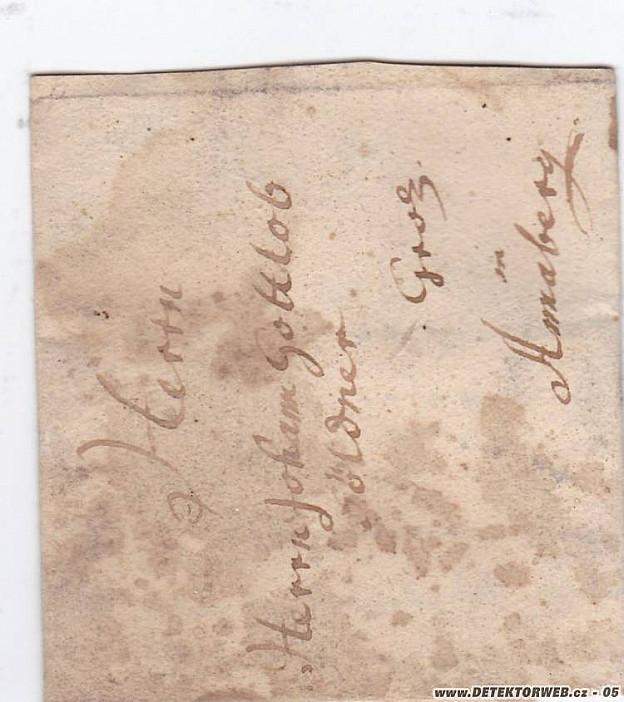 Herrn
Herrn Johann Gottlob
Göldner
Groz.
in
Annaberg.
www.DETEKTORWEB.cz - 05